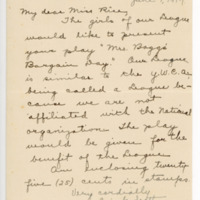 June
My dear Miss Rice,
The girls of our League
would like to present
your play "Mrs. Bagg's
Bargain Day." Our League
is similar to the Y.W.C.A.
being called a League be-
cause we are not
affiliated with the National
organization. The play
would be given for the
benefit of the League.
Am enclosing twenty
five (25) cents in stamps.
Very cordially